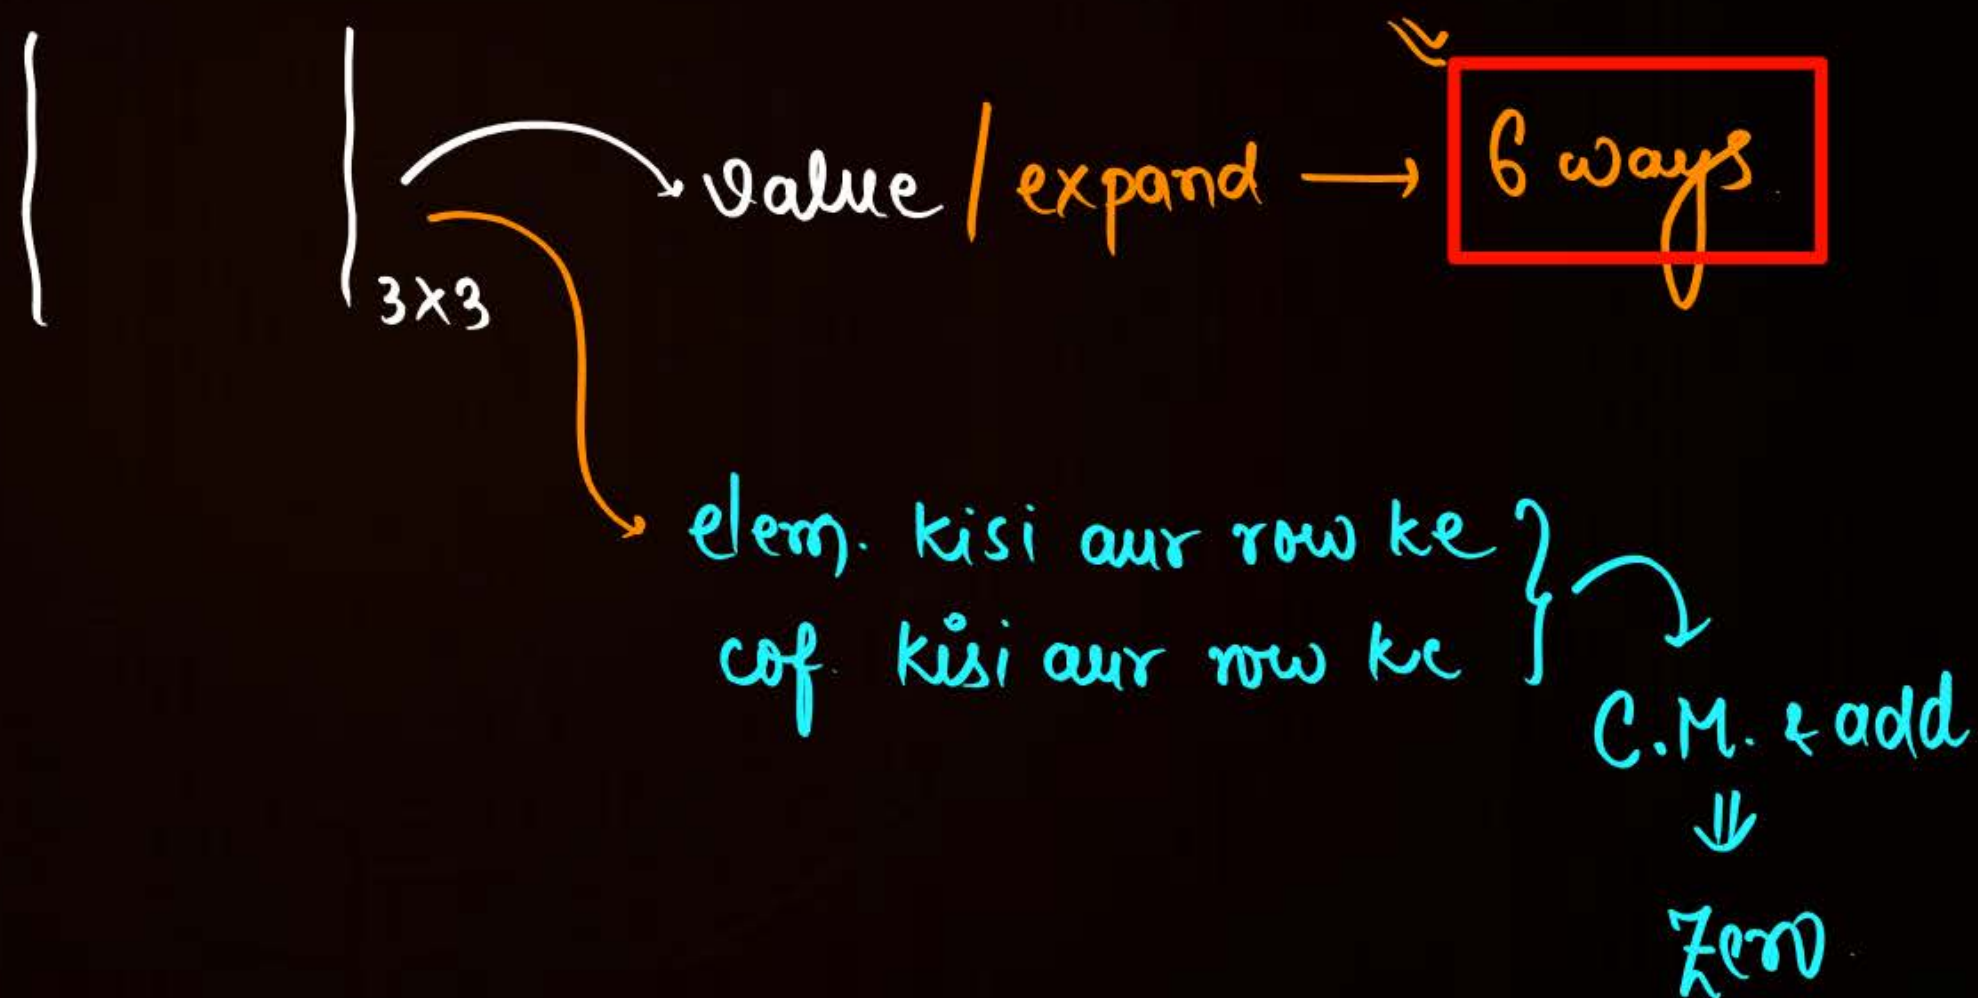 value / expand → 6 ways
3×3
elem. kisi aur row ke
cof. kisi aur row ke
C.M. & add
⇓
Zero